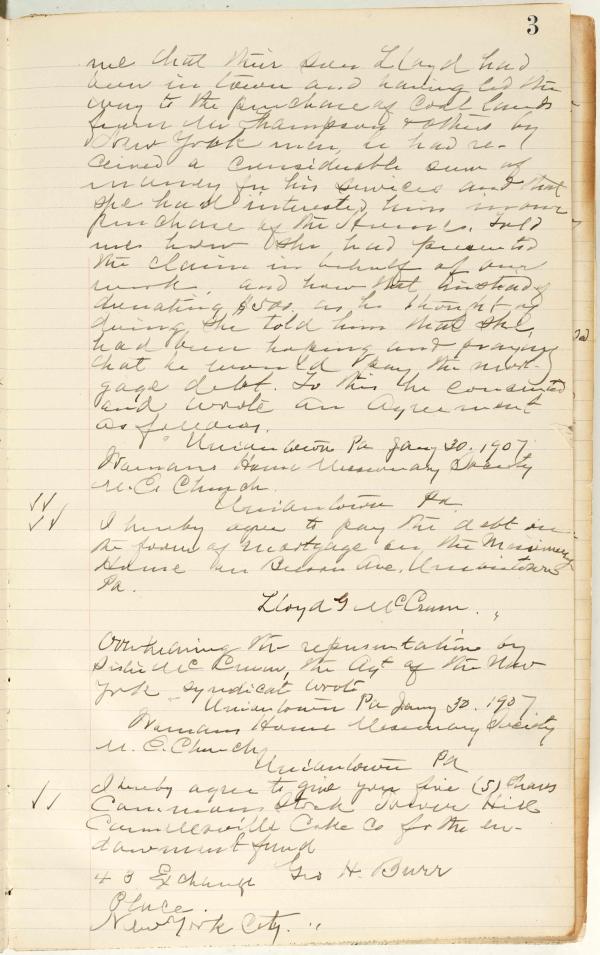 3
me that their son Lloyd had
been in town and having led the
way to the purchase of Coal lands
from Mr Thompson & others by
New York men, he had re-
ceived a considerable sum of
money for his services and that
she had interested him in our
purchase of the Home. Told
me how she had presented
the claim in behalf of our
work, and how that instead of
donating $500. as he thought of
doing, she told him that she,
had been hoping and praying
that he would pay the mort-
gage debt. To this he consented
and wrote an Agreement
as follows.
" Uniontown Pa Jany 30. 1907
Womans Home Missionary Society
M. E. Church.
Uniontown Pa.
I hereby agree to pay the debt in
the form of mortgage on the Missionary
Home on Beeson Ave. Uniontown
Pa.
Lloyd G McCrum. "
Overhearing the representation by
Sister McCrum, the Agt of the New
York syndicat wrote
" Uniontown Pa Jany 30. 1907
Womans Home Missionary Society
M. E. Church
Uniontown Pa
I hereby agree to give you five (5) Shares
Common Stock Tower Hill
Connellsville Coke Co for the en-
dowment fund
43 Exchange Geo H. Burr
Place.
New York City. "